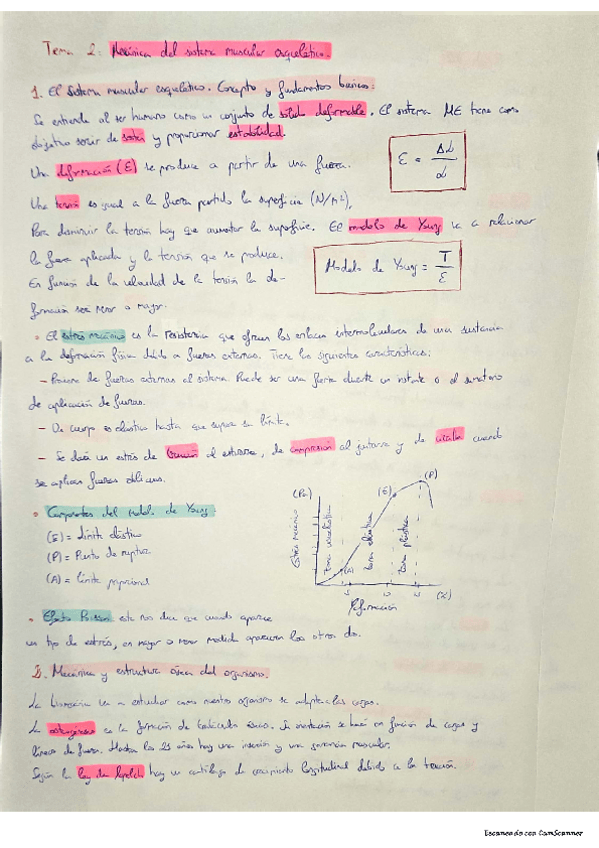 Tema 2: Mecánica del sistema muscular esquelético.
1. El sistema muscular esquelético. Concepto y fundamentos básicos:
Se entiende al ser humano como un conjunto de sólido deformable. El sistema ME tiene como
objetivo servir de sostén y proporcionar estabilidad.
Una deformación (ε) se produce a partir de una fuerza.
ε = ΔL / L
Una tensión es igual a la fuerza partido la superficie (N/m²),
Para disminuir la tensión hay que aumentar la superficie. El modelo de Young va a relacionar
la fuerza aplicada y la tensión que se produce.
Modelo de Young = T / ε
En función de la velocidad de la tensión la de-
formación será menor o mayor.
• El estrés mecánico es la resistencia que ofrecen los enlaces intermoleculares de una sustancia
a la deformación física debido a fuerzas externas. Tiene las siguientes características:
- Proviene de fuerzas externas al sistema. Puede ser una fuerza durante un instante o el sumatorio
de aplicación de fuerzas.
- Un cuerpo es elástico hasta que supera su límite.
- Se dará un estrés de tracción al estirarse, de compresión al juntarse y de cizalla cuando
se aplican fuerzas oblicuas.
• Componentes del modelo de Young:
(E) = Límite elástico
(P) = Punto de ruptura
(A) = límite proporcional
(Pa)
Estrés mecánico
Zona viscoelástica
Zona elástica
Zona plástica
(A)
(E)
(P)
(%)
Deformación
• Efecto Poisson: este nos dice que cuando aparece
un tipo de estrés, en mayor o menor medida aparecen los otros dos.
Mecánica y estructura ósea del organismo.
La va a estudiar como nuestro organismo se adapta a las cargas.
La osteogénesis es la formación de trabéculas óseas. Su orientación se hará en función de cargas y
líneas de fuerza. Hasta los 25 años hay una inserción y una muscular.
Según la ley de hay un cartílago de crecimiento longitudinal debido a la tracción.
Escaneado con CamScanner